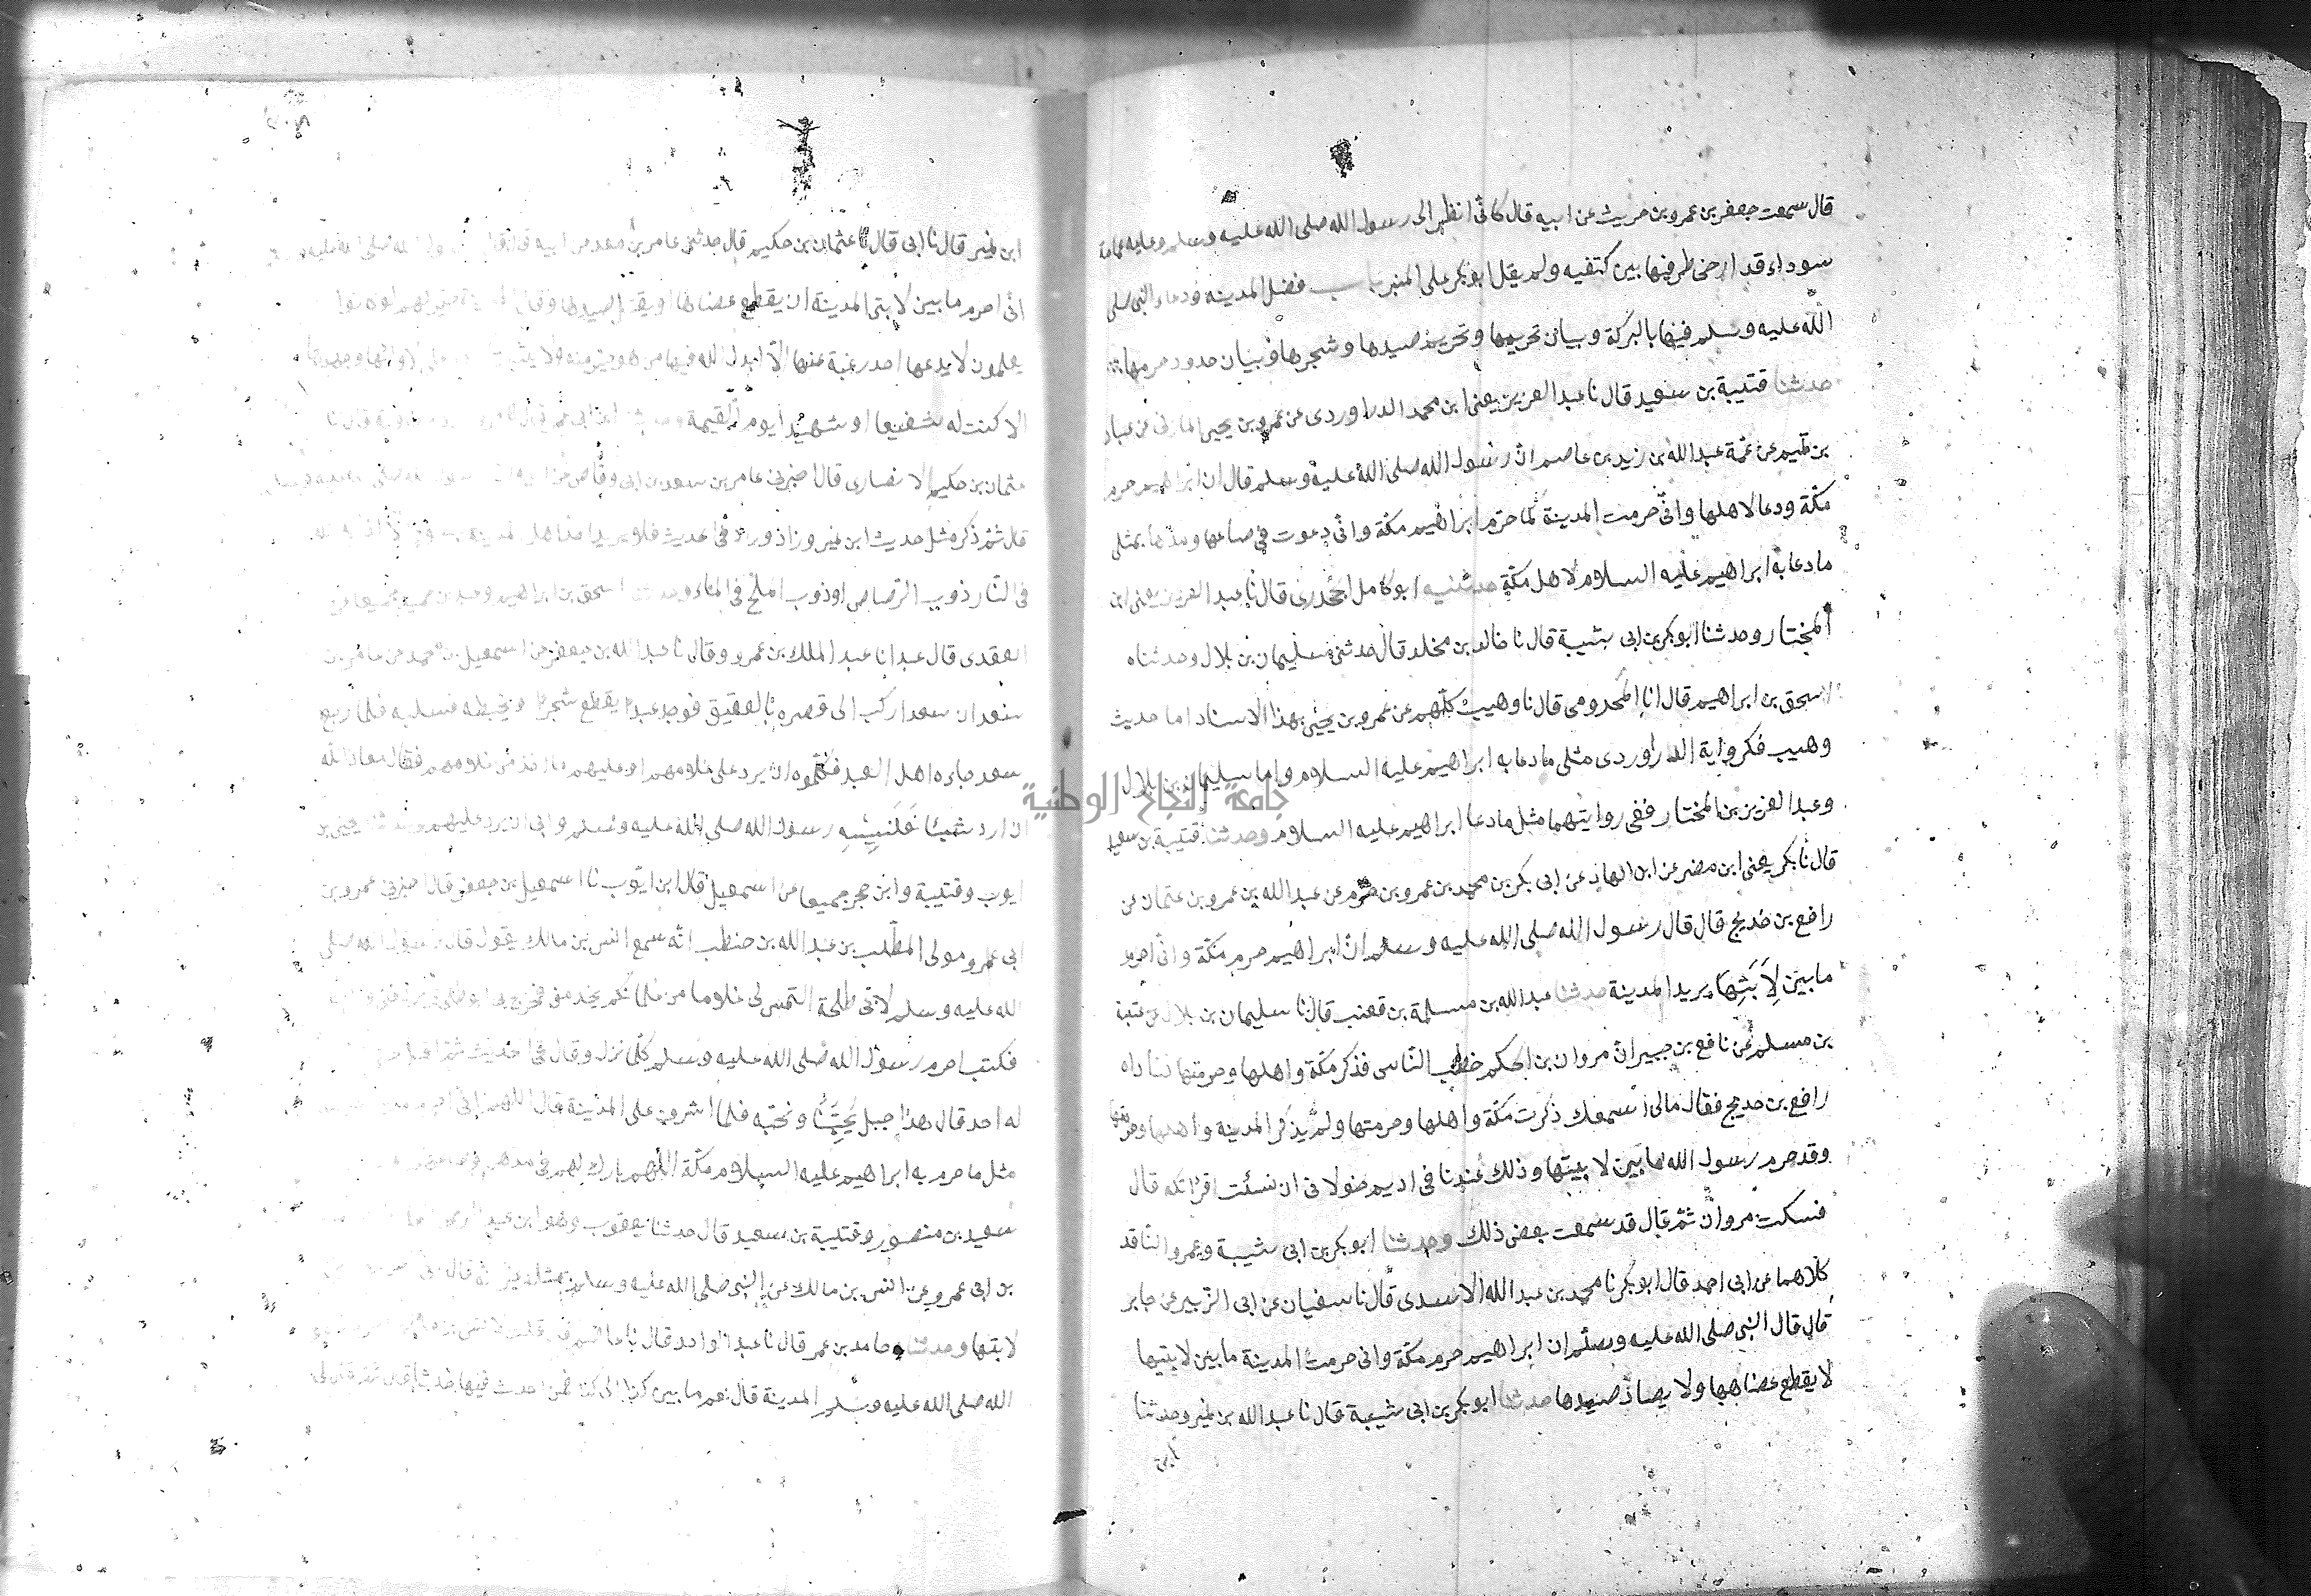 قال سمعت جعفر بن عمرو بن حريث عن ابيه قال كانى انظر الى رسول الله صلى الله عليه وسلم وعليه عمامة
سوداء قد ارخى طرفيها بين كتفيه ولم يقل ابو بكر على المنبر باب فضل المدينه ودعاء النبى صلى
الله عليه وسلم فيها بالبركة وبيان تحريمها وتحريم صيدها وشجرها وبيان حدود حرمها
حدثنا قتيبة بن سعيد قال نا عبد العزيز يعنى ابن محمد الدراوردى عن عمرو بن يحيى المازنى عن عباد
بن تميم عن عمه عبد الله بن زيد بن عاصم ان رسول الله صلى الله عليه وسلم قال ان ابراهيم حرم
مكة ودعا لاهلها وانى حرمت المدينة كما حرم ابراهيم مكة وانى دعوت فى صاعها ومدها بمثلى
ما دعا به ابراهيم عليه السلام لاهل مكة حدثنيه ابو كامل الجحدرى قال نا عبد العزيز يعنى ابن
المختار وحدثنا ابو بكر بن ابى شيبة قال نا خالد بن مخلد قال حدثنى سليمان بن بلال وحدثناه
اسحق بن ابراهيم قال انا المخزومى قال نا وهيب كلهم عن عمرو بن يحيى بهذا الاسناد اما حديث
وهيب فكرواية الدراوردى مثلى ما دعا به ابراهيم عليه السلام واما سليمان بن بلال
وعبد العزيز بن المختار ففى روايتهما مثل ما دعا ابراهيم عليه السلام وحدثنا قتيبة بن سعيد
قال نا بكر يعنى ابن مضر عن ابن الهاد عن ابى بكر بن محمد بن عمرو بن حزم عن عبد الله بن عمرو بن عثمان عن
رافع بن خديج قال قال رسول الله صلى الله عليه وسلم ان ابراهيم حرم مكة وانى احرم
ما بين لابتيها يريد المدينة حدثنا عبد الله بن مسلمة بن قعنب قال نا سليمان بن بلال عن عتبة
بن مسلم عن نافع بن جبير ان مروان بن الحكم خطب الناس فذكر مكة واهلها وحرمتها فناداه
رافع بن خديج فقال مالى اسمعك ذكرت مكة واهلها وحرمتها ولم يذكر المدينة واهلها وحرمتها
وقد حرم رسول الله ما بين لابيتها وذلك عندنا فى اديم خولانى ان شئت اقراتكه قال
فسكت مروان ثم قال قد سمعت بعض ذلك وحدثنا ابو بكر بن ابى شيبة وعمرو الناقد
كلاهما عن ابى احمد قال ابو بكر نا محمد بن عبد الله الاسدى قال نا سفيان عن ابى الزبير عن جابر
قال قال النبى صلى الله عليه وسلم ان ابراهيم حرم مكة وانى حرمت المدينة ما بين لابتيها
لا يقطع عضاهها ولا يصاد صيدها حدثنا ابو بكر بن ابى شيبة قال نا عبد الله بن نمير وحدثنا
ابن
ابن نمير قال نا ابى قال نا عثمان بن حكيم قال حدثنى عامر بن سعد عن ابيه قال قال رسول الله صلى الله عليه وسلم
انى احرم ما بين لابتى المدينة ان يقطع عضاهها او يقتل صيدها وقال المدينة خير لهم لو كانوا
يعلمون لا يدعها احد رغبة عنها الا ابدل الله فيها من هو خير منه ولا يثبت احد على لاوائها وجهدها
الا كنت له شفيعا او شهيدا يوم القيمة وحدثنا ابن ابى عمر قال نا
عثمان بن حكيم الانصارى قال اخبرنى عامر بن سعد بن ابى وقاص عن ابيه ان رسول الله صلى الله عليه وسلم
قال ثم ذكر مثل حديث ابن نمير وزاد فى الحديث ولا يريد احد اهل المدينة بسوء الا اذابه الله
فى النار ذوب الرصاص او ذوب الملح فى الماء وحدثنا اسحق بن ابراهيم وعبد بن حميد جميعا عن
العقدى قال عبد انا عبد الملك بن عمرو وقال نا عبد الله بن جعفر عن اسمعيل بن محمد عن عامر بن
سعد ان سعدا ركب الى قصره بالعقيق فوجد عبدا يقطع شجرا او يخبطه فسلبه فلما رجع
سعد جاءه اهل العبد فكلموه ان يرد على غلامهم او عليهم ما اخذ من غلامهم فقال معاذ الله
ان ارد شيئا نفلنيه رسول الله صلى الله عليه وسلم وابى ان يرد عليهم وحدثنا يحيى بن
ايوب وقتيبة وابن حجر جميعا عن اسمعيل قال ابن ايوب نا اسمعيل بن جعفر قال اخبرنى عمرو بن
ابى عمرو مولى المطلب بن عبد الله بن حنطب انه سمع انس بن مالك يقول قال رسول الله صلى
الله عليه وسلم لابى طلحة التمس لى غلاما من غلمانكم يخدمنى فخرج بى ابو طلحة
رسول الله صلى الله عليه وسلم كلما نزل وقال فى الحديث ثم اقبل
له احد قال هذا جبل يحبنا ونحبه فلما اشرف على المدينة قال اللهم انى احرم
مثل ما حرم به ابراهيم عليه السلام مكة اللهم بارك لهم فى مدهم وصاعهم
سعيد بن منصور وقتيبة بن سعيد قال حدثنا يعقوب وهو ابن عبد الرحمن
بن ابى عمرو عن انس بن مالك عن النبى صلى الله عليه وسلم بمثله غير انه قال انى
لابتيها وحدثنا حامد بن عمر قال نا عبد الواحد قال نا عاصم قال قلت لانس بن مالك
الله صلى الله عليه وسلم المدينة قال نعم ما بين كذا الى كذا فمن احدث فيها حدثا قال ثم قال لى
جامعة النجاح الوطنية